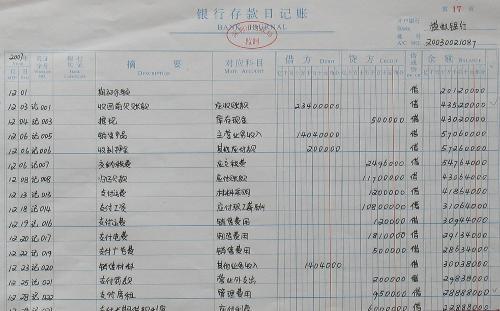 第 17 页
银行存款日记账
BANK JOURNAL
开户银行 模拟银行
BANK
账号
A/C NO. 20030021087
2009年 凭证 摘要 DESCRIPTION 对应科目 MAIN ACCOUNT 借方 DEBIT 贷方 CREDIT 余额 BALANCE
12 01 期初余额 借 20120000
12 03 记001 收回前欠账款 应收账款 23400000 借 43520000
12 04 记003 提现 库存现金 500000 借 43020000
12 06 记005 销售产品 主营业务收入 14040000 借 57060000
12 06 记006 收到押金 其他应付款 200000 借 57260000
12 06 记007 交纳税费 应交税费 2496000 借 54764000
12 08 记008 应付账款 11700000 借 43064000
12 13 记013 支付运费 材料采购 1200000 借 41864000
12 18 记014 支付工资 应付职工薪酬 10800000 借 31064000
12 19 记016 支付运费 销售费用 120000 借 30944000
12 20 记017 支付电费 1810000 借 29134000
12 22 记019 支付广告费 销售费用 500000 借 28634000
12 23 记020 销售材料 其他业务收入 1404000 借 30038000
12 25 记021 支付罚款 营业外支出 200000 借 29838000
12 28 记022 支付房租 管理费用 950000 借 28888000
6000000 借 22888000